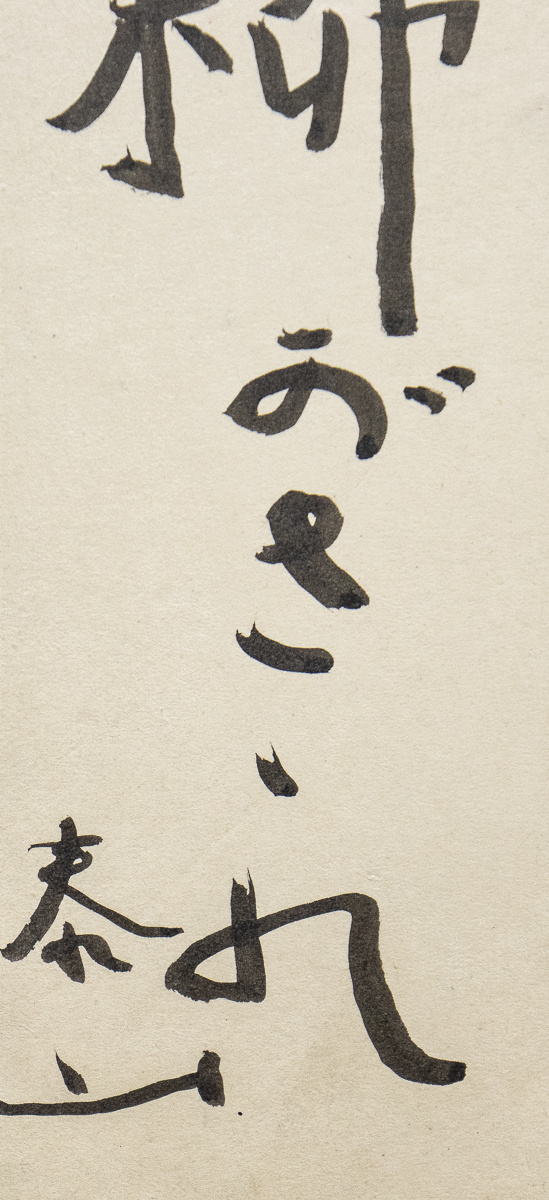 柳がさゝれ
泰山